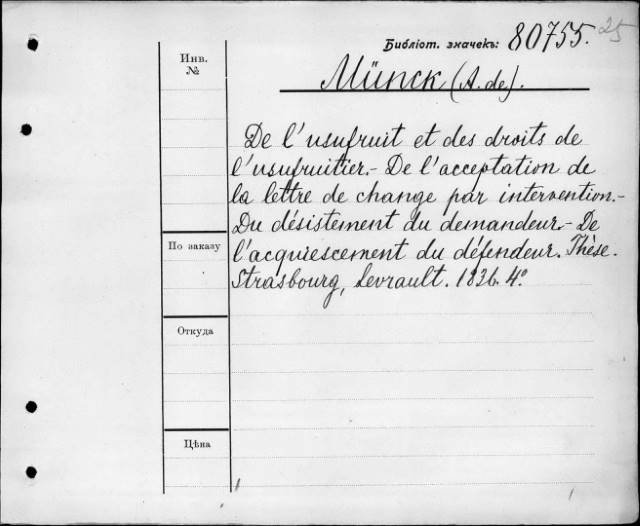 Библіот. значекъ: 80755. 25
Инв.
№
Münck (A. de).
De l'usufruit et des droits de
l'usufruitier.- De l'acceptation de
la lettre de change par intervention.-
Du désistement du demandeur.- De
По заказу
l'acquiescement du défendeur. Thèse.
Strasbourg, Levrault. 1836. 4º
Откуда
Цѣна